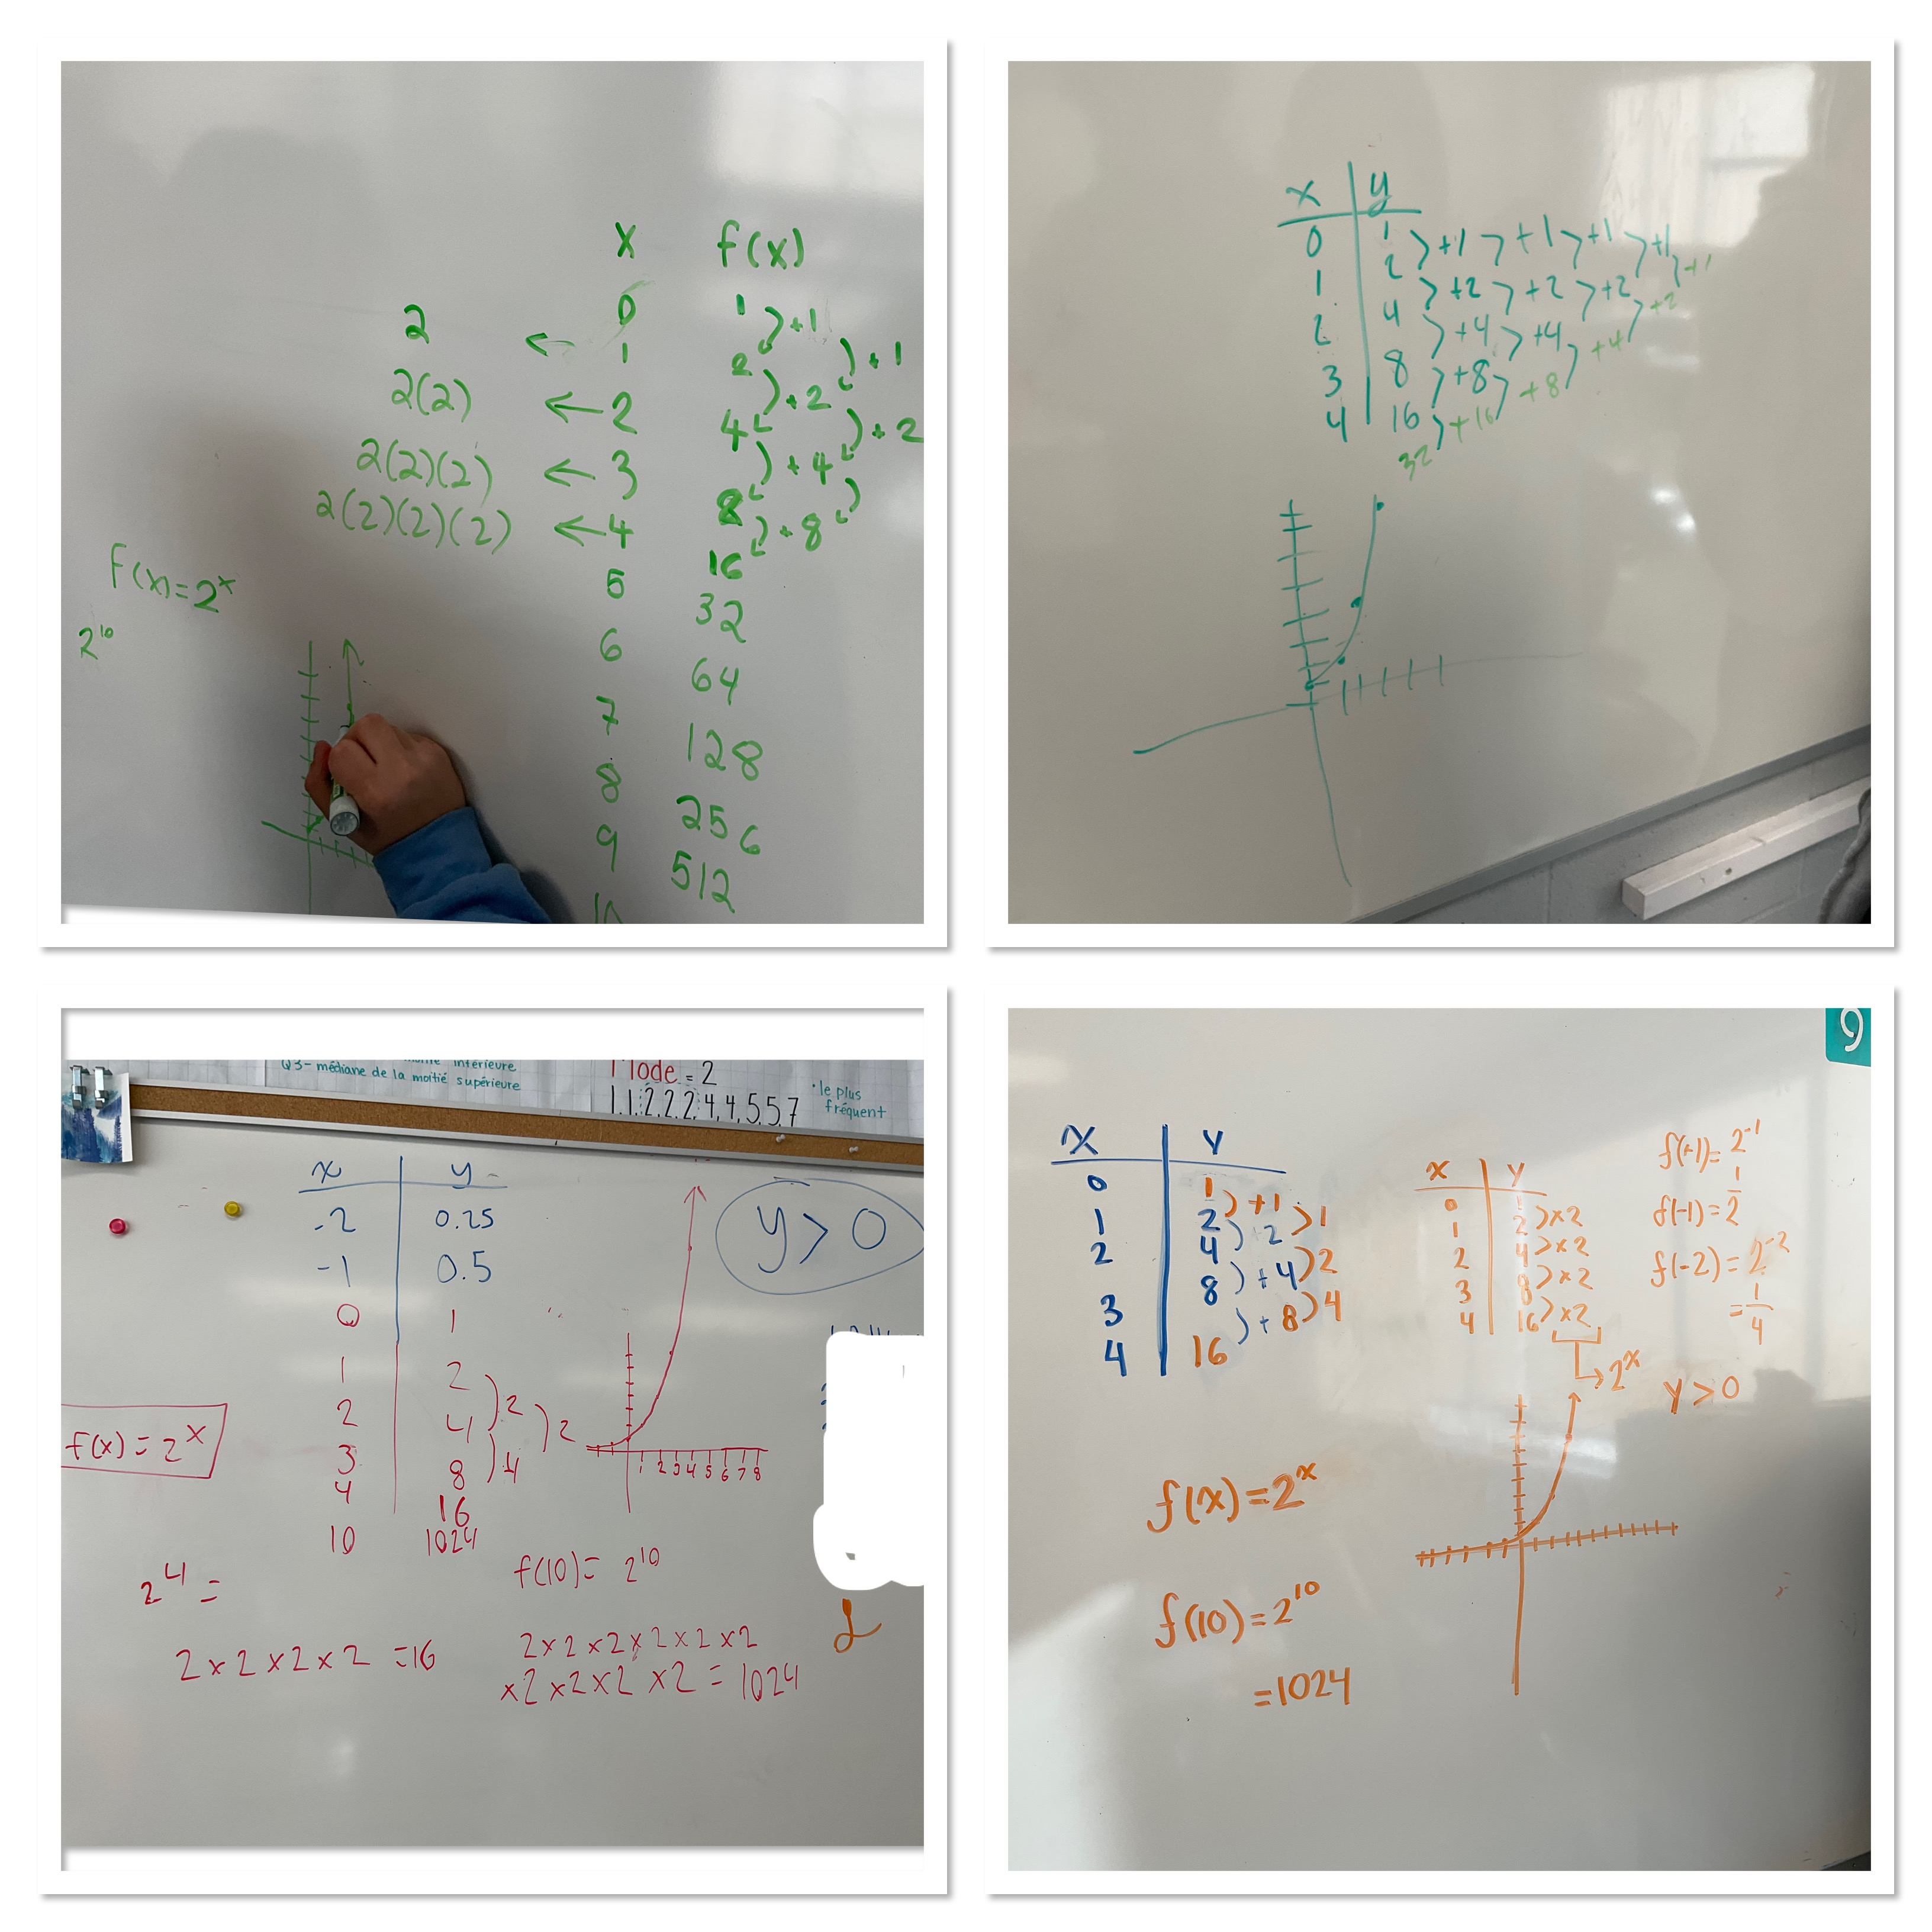 x f(x)
0 1 )+1
2 ← 1 2 )+1
2(2) ← 2 )+2
4 )+2
2(2)(2) ← 3 )+4
8
2(2)(2)(2) ← 4 )+8
16
f(x)=2^x
5 32
2^10
6 64
7 128
8 256
9 512
10
x y
0 1 )+1 )+1 )+1 )+1 )+1
1 2 )+2 )+2 )+2 )+2
2 4 )+4 )+4 )+4
3 8 )+8 )+8
4 16 )+16
32
Q3- médiane de la moitié supérieure
inférieure
Mode = 2
1,1,2,2,2,4,4,5,5,7
• le plus
fréquent
x y
-2 0.25
-1 0.5
0 1
1 2
2 4 )2 )2
3 8 )4
4 16
10 1024
y > 0
f(x) = 2^x
1 2 3 4 5 6 7 8
2^4 =
2 x 2 x 2 x 2 = 16
f(10) = 2^10
2 x 2 x 2 x 2 x 2 x 2
x 2 x 2 x 2 x 2 = 1024
9
x y
0 1 )+1
1 2 )+2 >1
2 4 )+4 )2
3 8 )+8 )4
4 16
x y
0 1
1 2 >x2
2 4 >x2
3 8 >x2
4 16 >x2
→ 2^x
f(-1) = 2^-1
f(-1) = 1/2
f(-2) = 2^-2
= 1/4
y > 0
f(x) = 2^x
f(10) = 2^10
= 1024